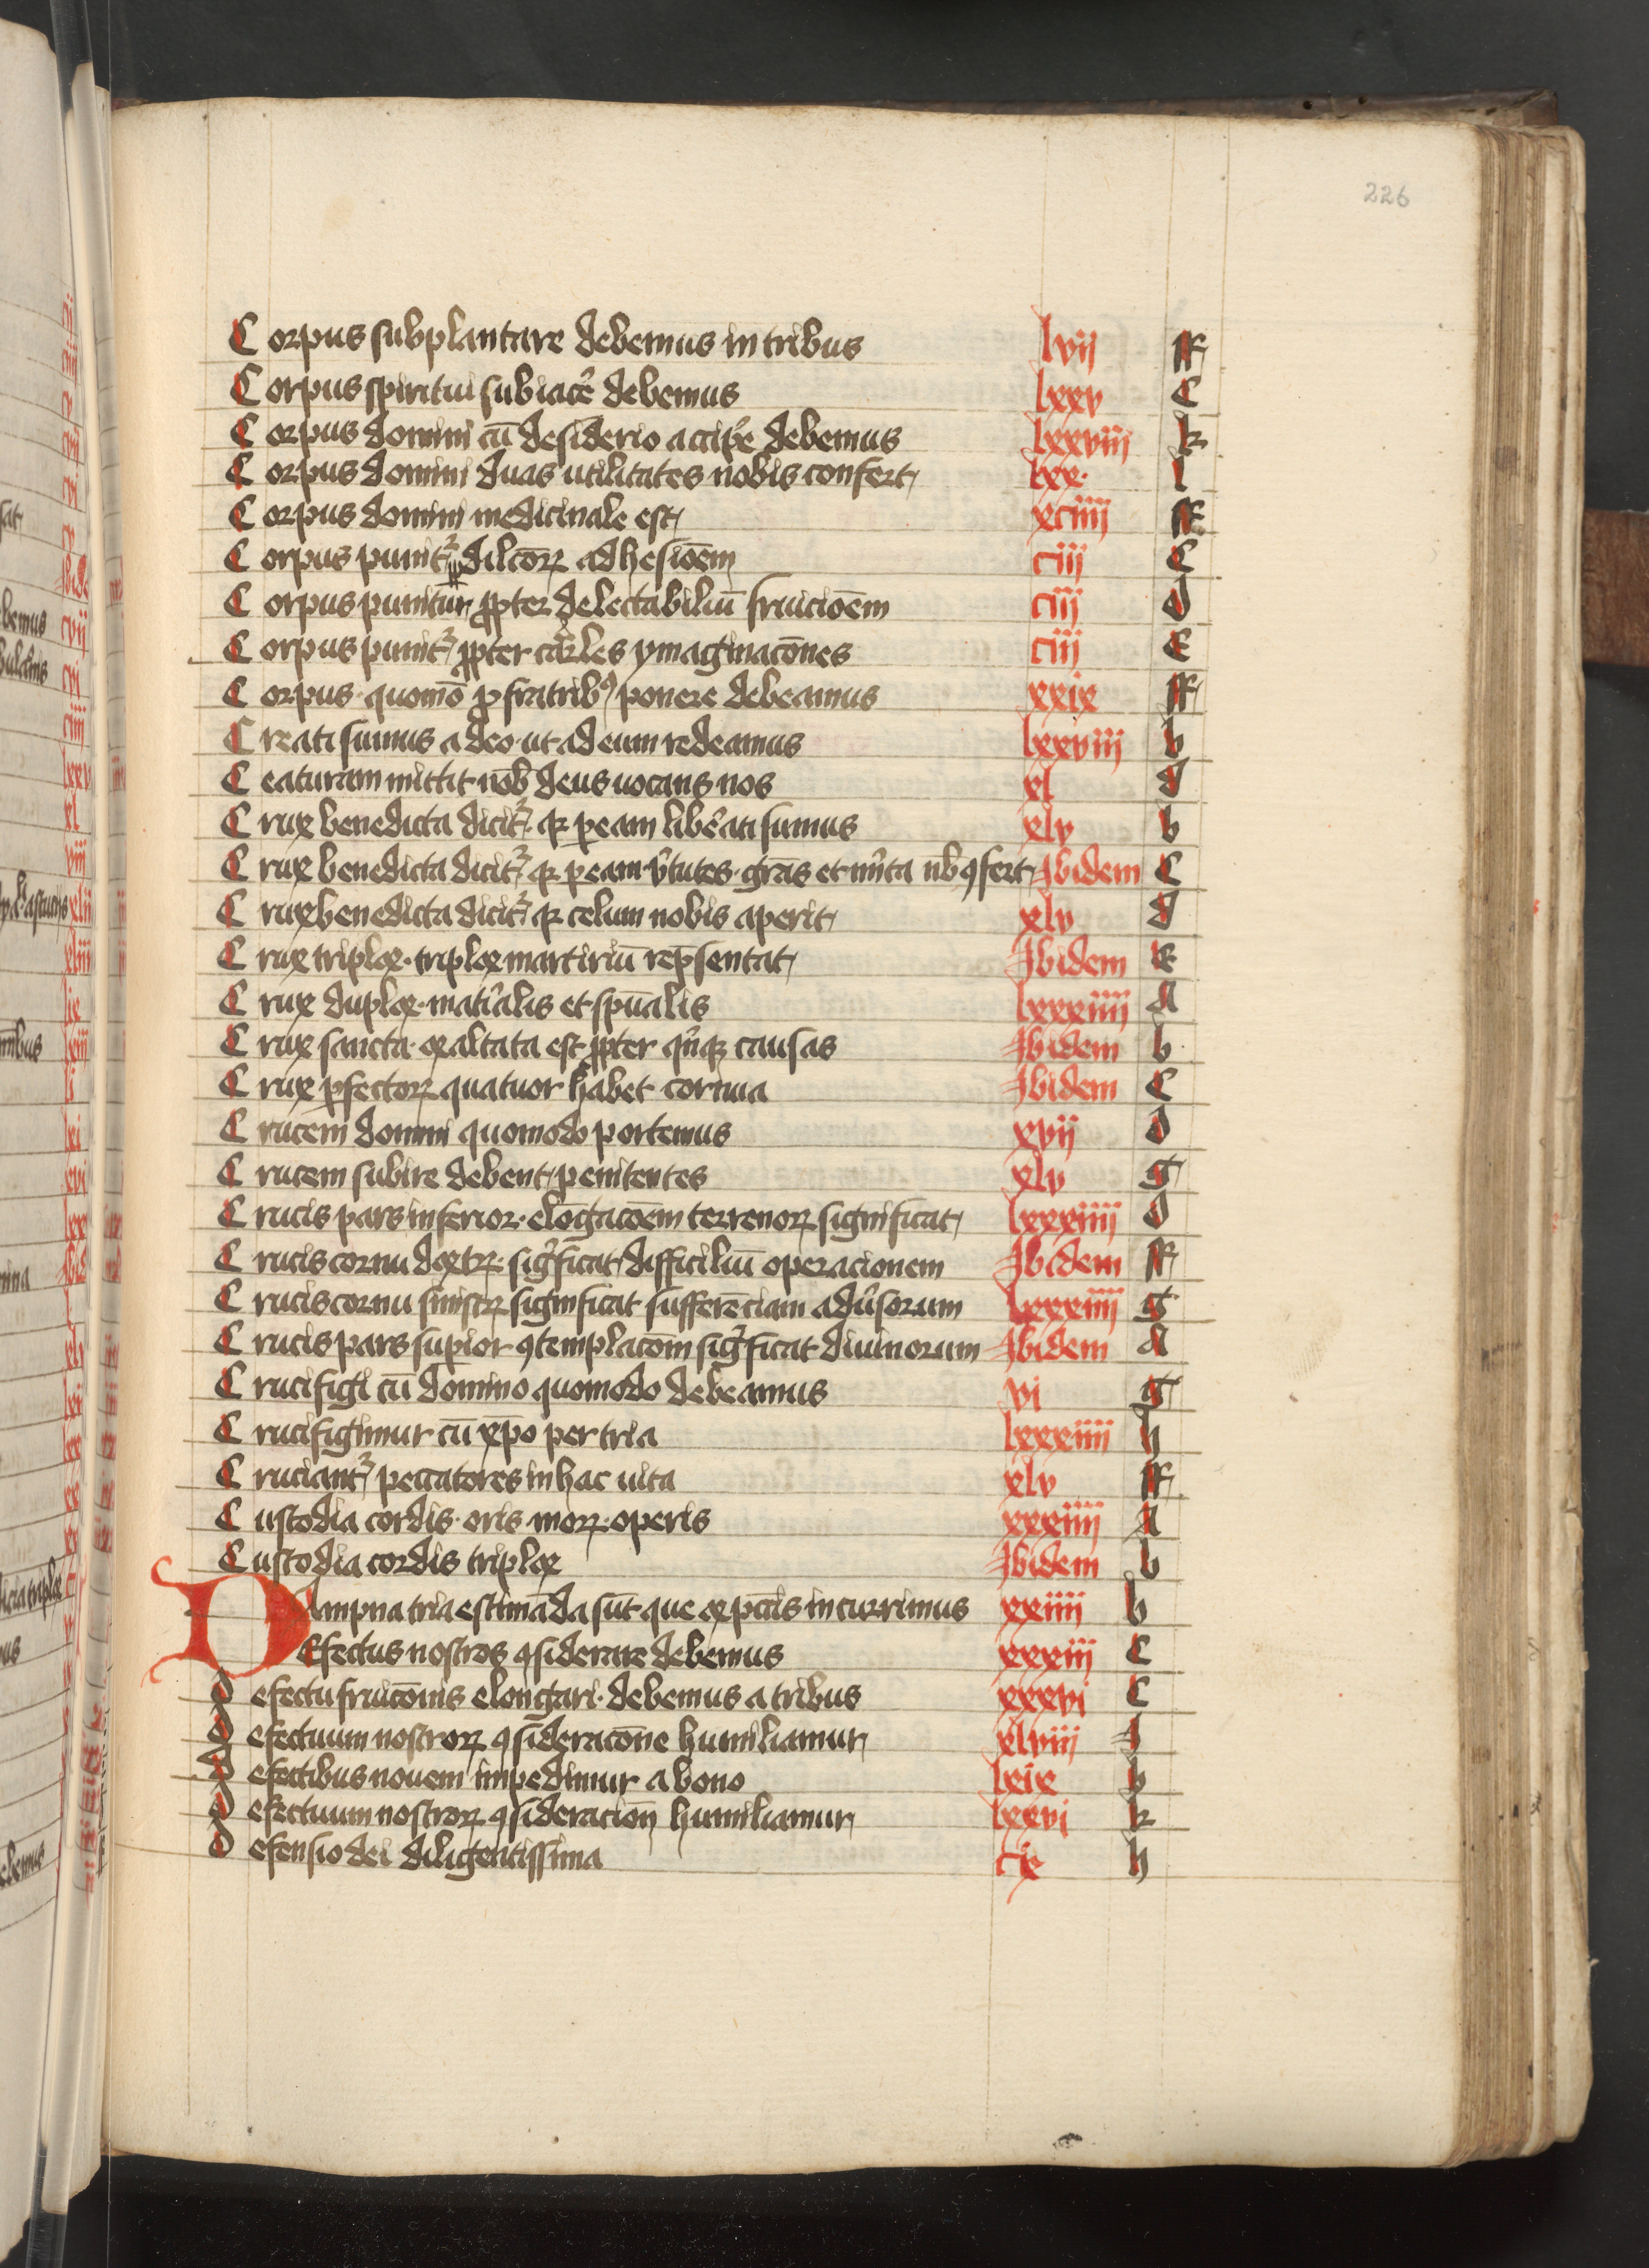 226
Corpus subplantare debemus in tribus lvij ff
Corpus spiritui subiacē debemus lxxv C
Corpus domini cū desiderio accipe debemus lxxviij k
Corpus domini duas utilitates nobis confert lxx. l
Corpus domini medicinale est xciiij ff
Corpus punit² dilcōꝝ adhesiōem ciij C
Corpus punitur ꝓpter delectabiliū fruiciōem ciij d
Corpus punit² ꝓpter carles ymaginacōnes ciij E
Corpus quomō ꝓ fratribꝰ ponere debeamus xxix ff
Creati sumus a deo ut ad eum redeamus lxxviij b
Ceaturam mittit nob deus uocans nos xl d
Crux benedicta dicit² qꝛ ꝑ eam liƀati sumus xlv b
Crux benedicta dicit² qꝛ ꝑ eam v̄tutes grās et mīta nb ꝯfert Ibidem C
Crux benedicta dicit² qꝛ celum nobis aperit xlv d
Crux triplex triplex martiriū rep̄sentat Ibidem E
Crux duplex matīalis et spūalis lxxxiiij A
Crux sancta exaltata est ꝓpter qⁱnqꝫ causas Ibidem b
Crux ꝑfectoꝝ quatuor habet cornua Ibidem C
Crucem domini quomodo portemus xvij d
Crucem subire debent penitentes xlv g
Crucis pars inferior elōgacōem terrenoꝝ significat lxxxiiij d
Crucis cornu dextꝝ sigⁱficat difficiliū operacionem Ibidem ff
Crucis cornu sinistꝝ significat sufferēciam adūsorum lxxxiiij g
Crucis pars suꝑior ꝯtemplacōm sigⁱficat diuinorum Ibidem A
Crucifigi cū domino quomodo debeamus vi g
Crucifigimur cū xp̄o per tria lxxxiiij h
Cruciant² peccatores in hac uita xlv ff
Custodia cordis oris moꝝ operis xxxiiij A
Custodia cordis triplex Ibidem b
Dampna tria estimāda sūt que ex pccīs incurrimus xxiiij b
DEfectus nostros ꝯsiderare debemus xxxiij C
defectu fruicōnis elongari debemus a tribus xxxvi C
defectuum nostroꝝ ꝯsideracōne humiliamur xlviij I
defectibus nouem impedimur a bono lxix b
defectuum nostroꝝ ꝯsideracioñ humiliamur lxxvi k
defensio dei diligentissima cix h